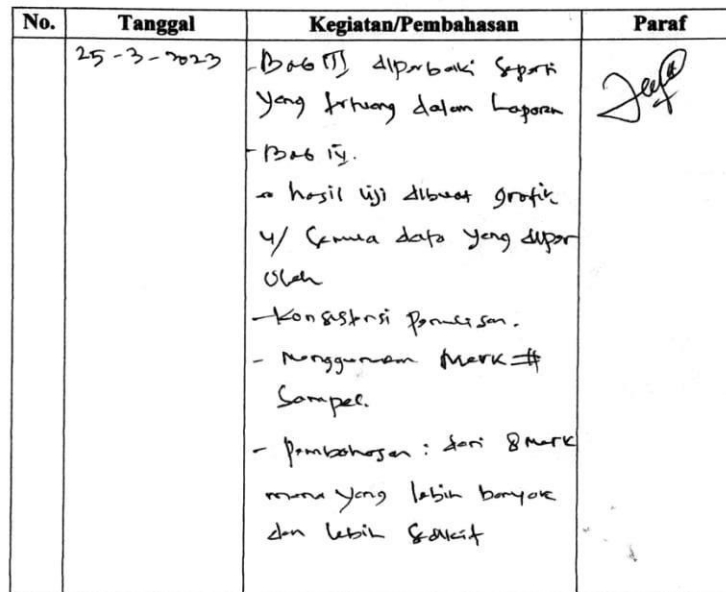 No. Tanggal Kegiatan/Pembahasan Paraf
25-3-2023 - Bab III diperbaiki seperti
yang tertuang dalam Laporan
- Bab IV.
hasil uji dibuat grafik
u/ semua data yang diper
oleh
- Konsistensi penulisan.
- Menggunakan Mark #
Sampel.
- Pembahasan : dari 8 Mark
mana yang lebih banyak
dan lebih sedikit